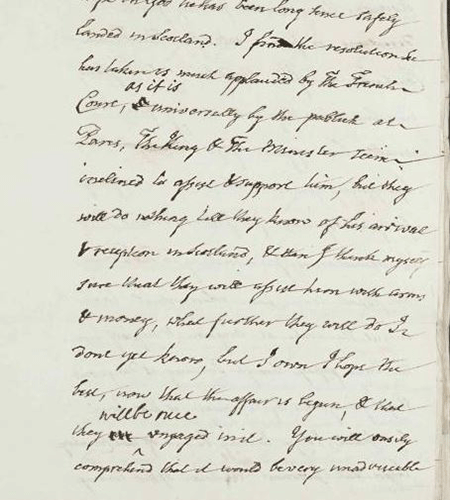 God he has been long since safely
landed in Scotland. I find the resolution he
has taken is much applauded by the French
as it is
Court, & universally by the publick at
Paris, The King & The Minister seem
inclined to assist & support him, but they
will do nothing till they know of his arrival
& reception in Scotland, & then I think myself
sure that they will assist him with arms
& money, what further they will do I
dont yet know, but I own I hope the
best, now that the affair is begun, & that
will be once
they engaged in it. You will easily
comprehend that it would be very unadviseable